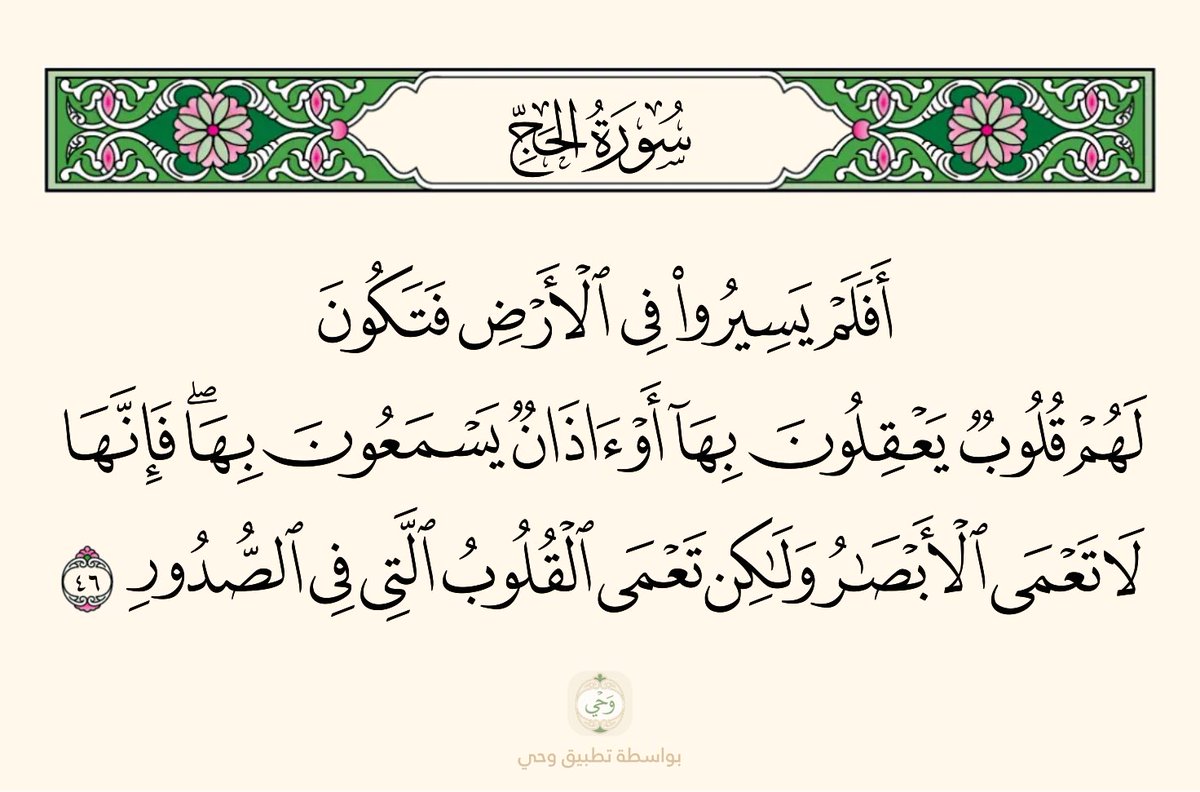 سُورَةُ الحَجِّ
أَفَلَمۡ يَسِيرُواْ فِي ٱلۡأَرۡضِ فَتَكُونَ
لَهُمۡ قُلُوبٞ يَعۡقِلُونَ بِهَآ أَوۡ ءَاذَانٞ يَسۡمَعُونَ بِهَاۖ فَإِنَّهَا
لَا تَعۡمَى ٱلۡأَبۡصَٰرُ وَلَٰكِن تَعۡمَى ٱلۡقُلُوبُ ٱلَّتِي فِي ٱلصُّدُورِ ٤٦
وَحْي
بواسطة تطبيق وحي